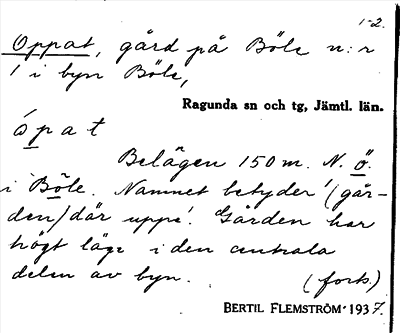 1-2.
Oppat, gård på Böle n:r
1 i byn Böle,
Ragunda sn och tg, Jämtl. län.
ópat
Belägen 150 m. N. Ö.
i Böle. Namnet betyder '(går-
den) där uppe'. Gården har
högt läge i den centrala
delen av byn. (forts)
BERTIL FLEMSTRÖM 1937.